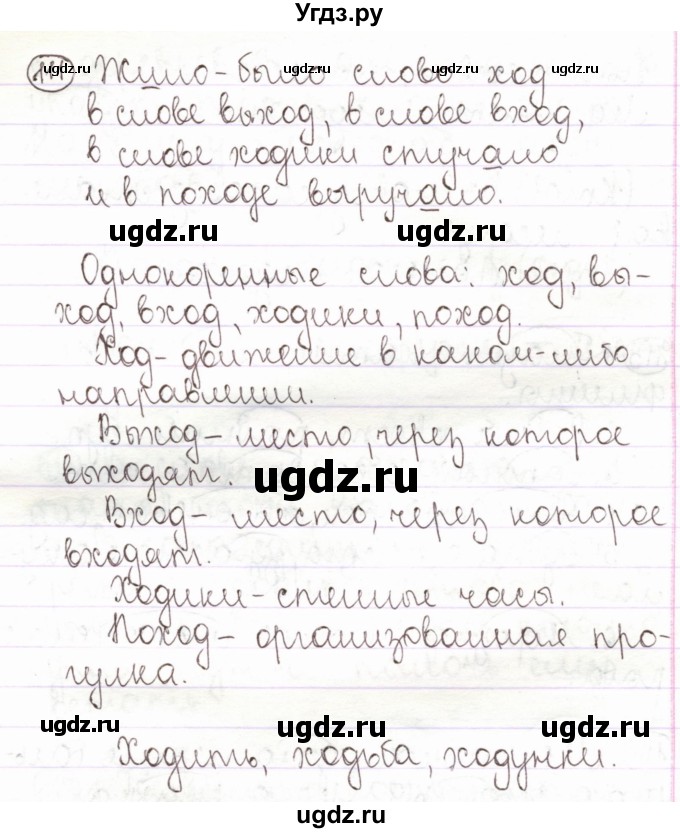 Угдз.ру
141 Жило-было слово ход
в слове выход, в слове вход,
в слове ходики стучало
и в походе выручало.
ugdz.ru ugdz.ru
Однокоренные слова: ход, вы-
ход, вход, ходики, поход.
Ход - движение в каком-либо
направлении.
Выход - место, через которое
выходят.
ugdz.ru
Вход - место, через которое
входят.
Ходики - стенные часы.
Поход - организованная про-
гулка.
ugdz.ru ugdz.ru ugdz.ru
Ходить, ходьба, ходунки.
ugdz.ru